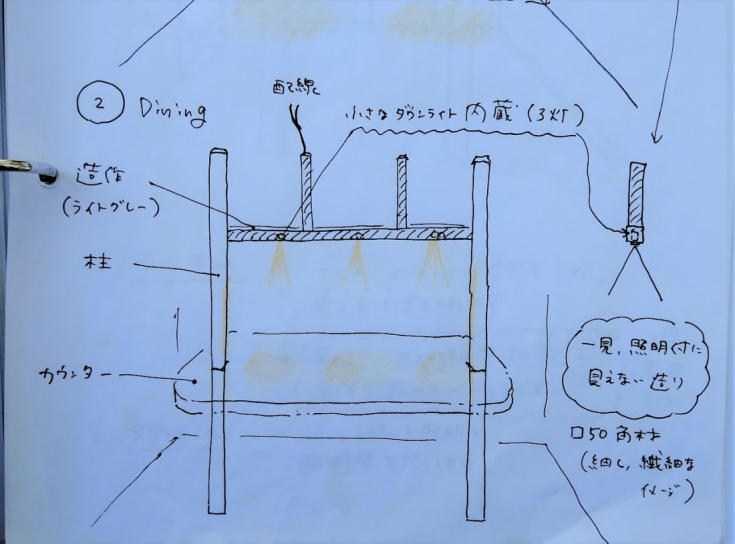 ② Dining
配線
小さなダウンライト内蔵(3灯)
造作
(ライトグレー)
柱
カウンター
一見、照明器具に
見えない造り
口50角材
(細く、繊細な
イメージ)